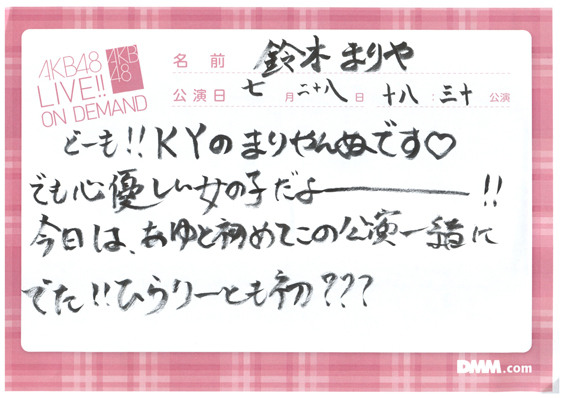 AKB48
LIVE!!
ON DEMAND
AKB
48
名前 鈴木まりや
公演日 七月二十八日 十八:三十公演
どーも!!KYのまりやんぬです♡
でも心優しい女の子だよ―――!!
今日は、あゆと初めてこの公演一緒に
でた!!ひらりーとも初???
DMM.com